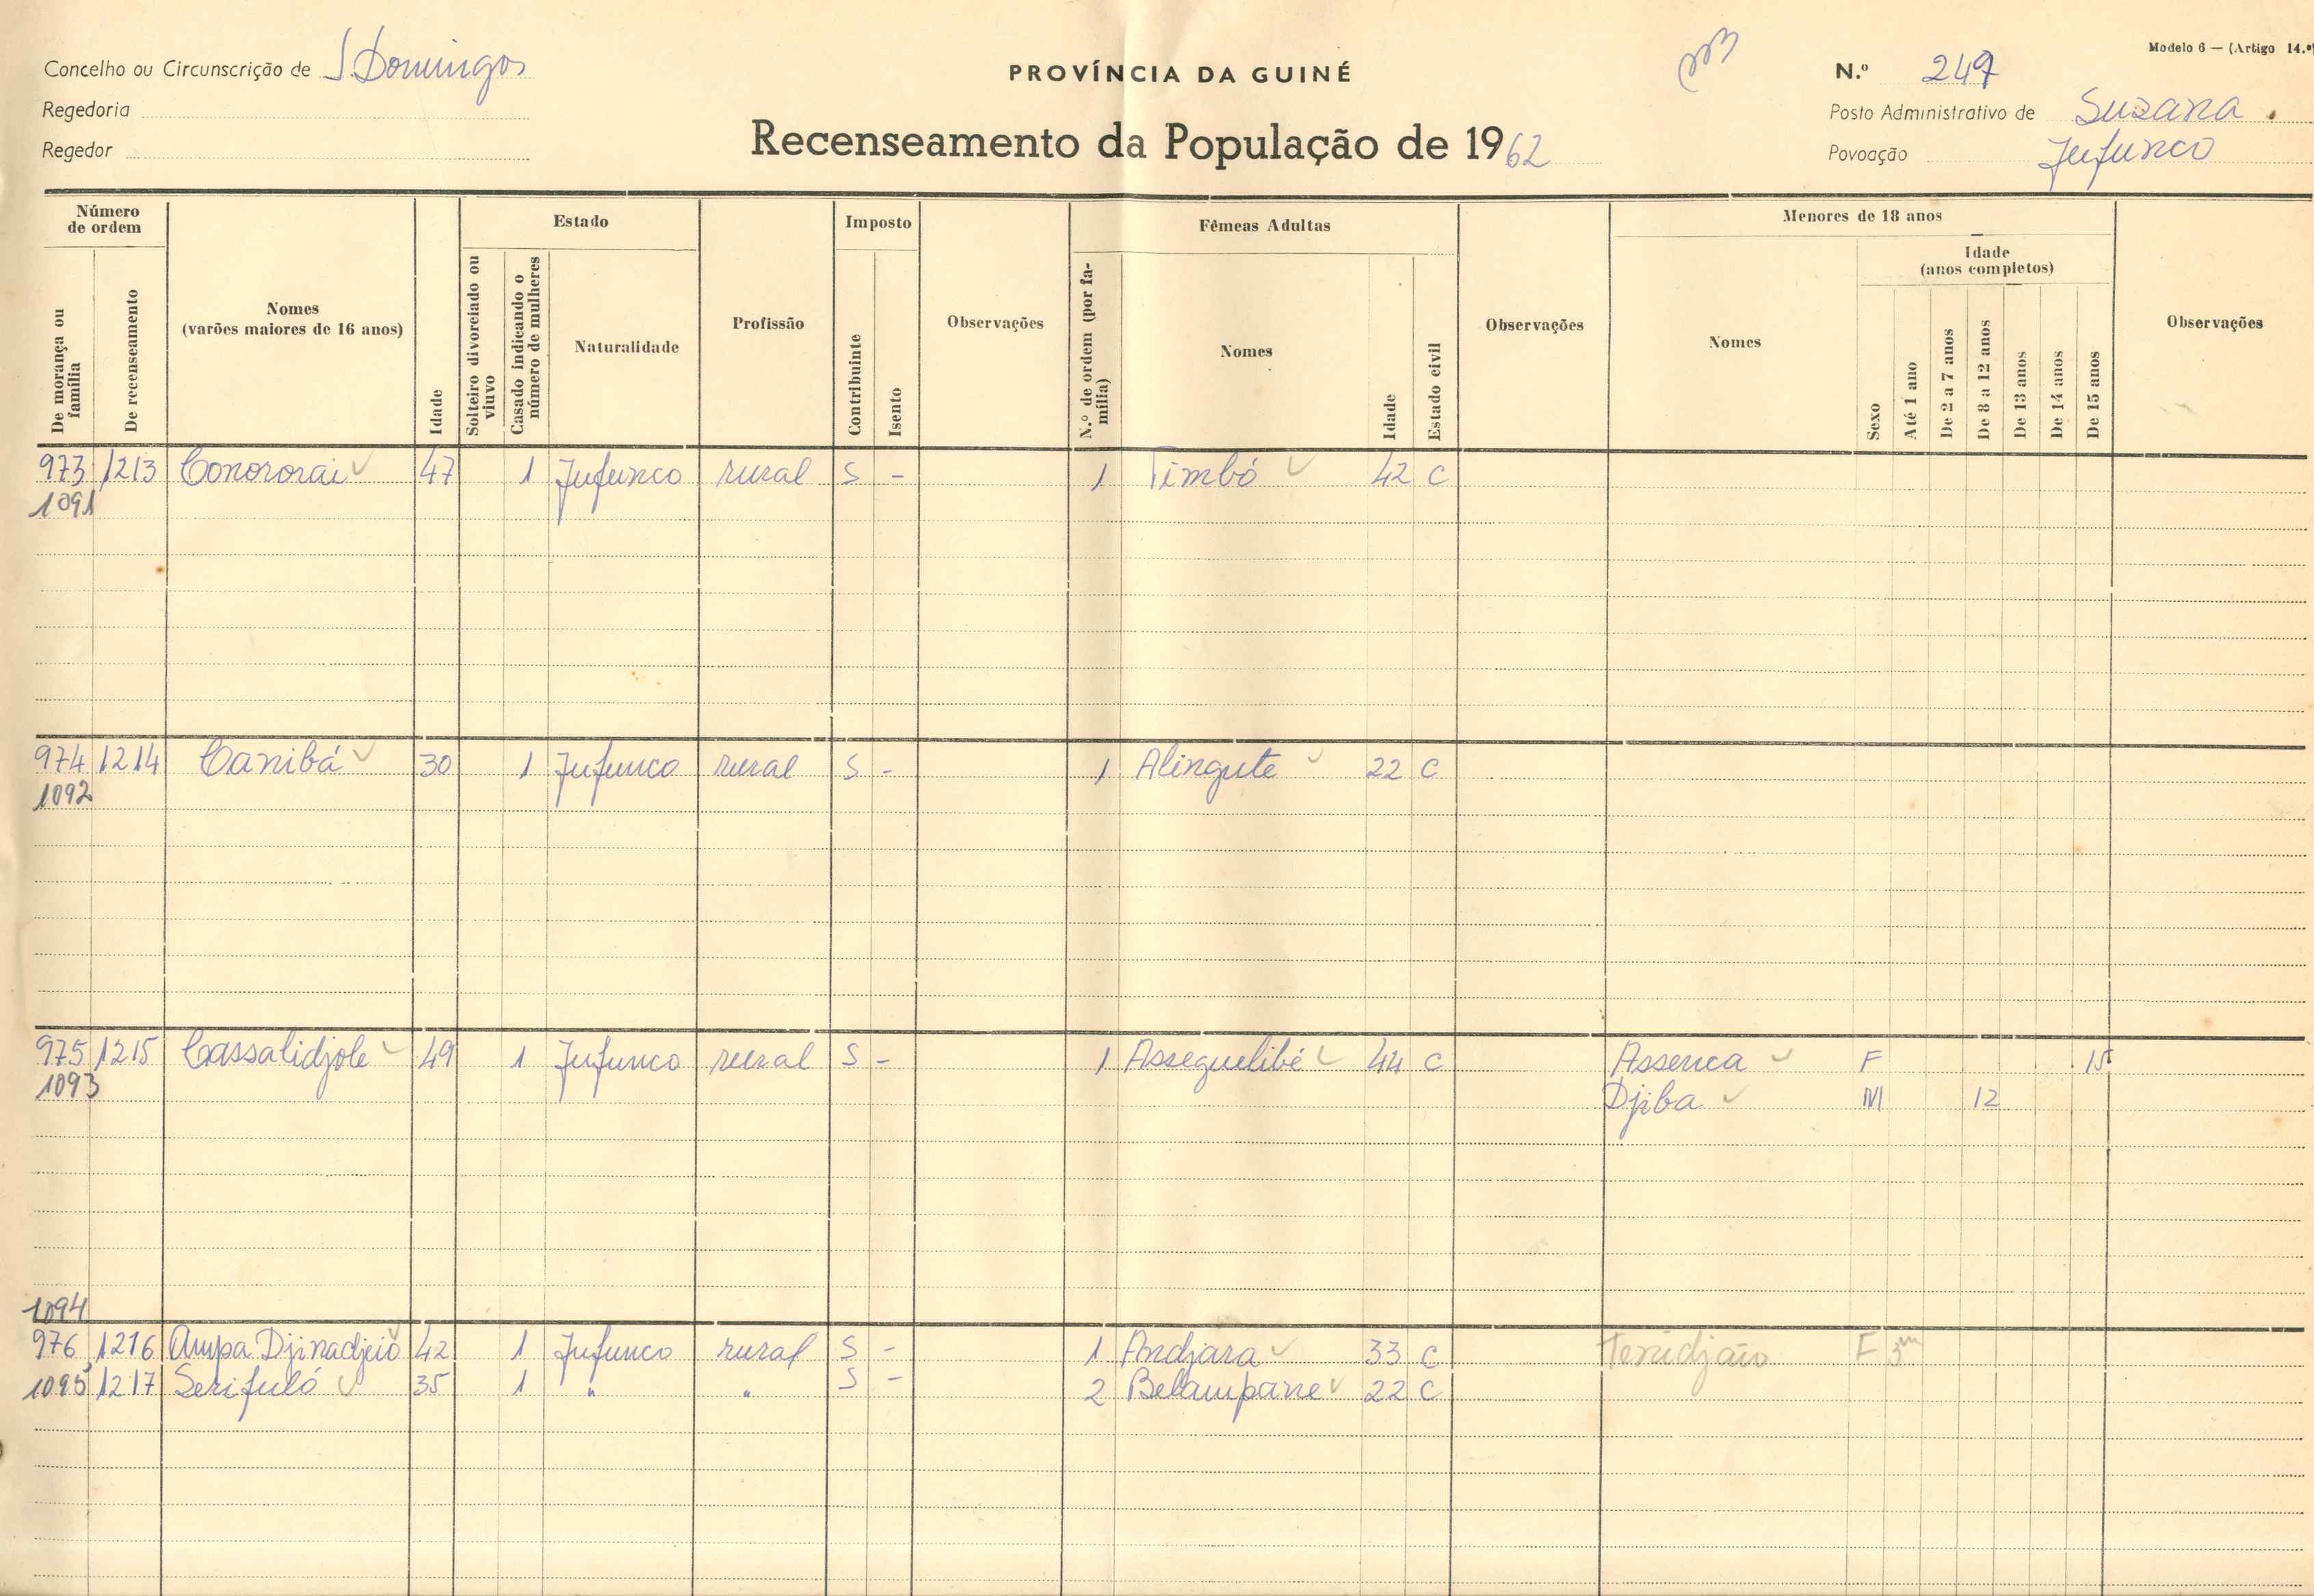 Modelo 6 — (Artigo 14.º)
Concelho ou Circunscrição de S. Domingos
PROVÍNCIA DA GUINÉ
N.º 247
Regedoria
Posto Administrativo de Suzana
Regedor
Recenseamento da População de 1962
Povoação Jufunco
Número de ordem
De morança ou família
De recenseamento
Nomes
(varões maiores de 16 anos)
Idade
Estado
Solteiro divorciado ou viuvo
Casado indicando o número de mulheres
Naturalidade
Profissão
Imposto
Contribuinte
Isento
Observações
Fêmeas Adultas
N.º de ordem (por família)
Nomes
Idade
Estado civil
Observações
Menores de 18 anos
Nomes
Sexo
Idade
(anos completos)
Até 1 ano
De 2 a 7 anos
De 8 a 12 anos
De 13 anos
De 14 anos
De 15 anos
Observações
973 1213 Conororai 47 1 Jufunco rural S - 1 Timbó 42 C
1091
974 1214 Canibá 30 1 Jufunco rural S - 1 Alingute 22 C
1092
975 1215 Cassalidjole 49 1 Jufunco rural S - 1 Asseguelibé 44 C Assenca F 15
1093 Djiba M 12
1094
976 1216 Ampa Djinadjeió 42 1 Jufunco rural S - 1 Andjara 33 C F 3m
1095 1217 Serifuló 35 1 " " S - 2 Belampane 22 C